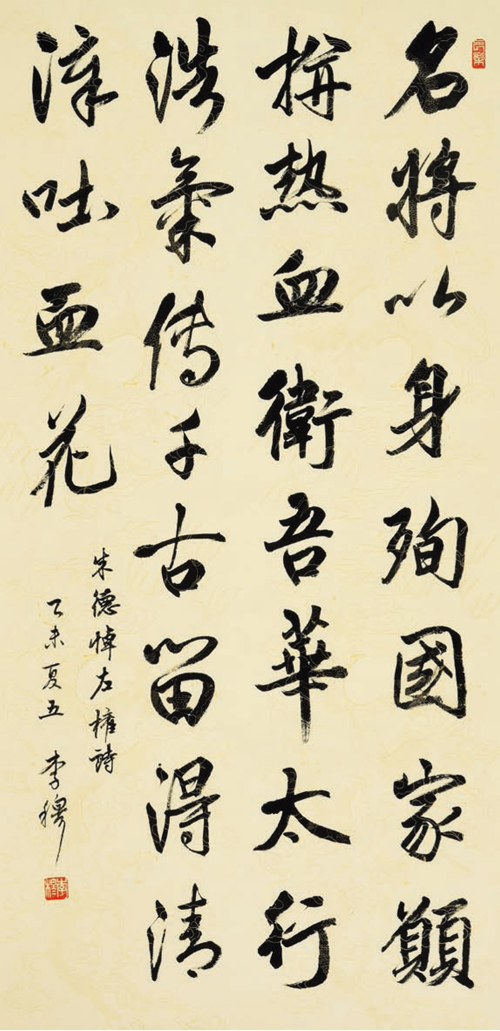 名將以身殉國家願
拚熱血衛吾華太行
浩氣傳千古留得清
漳吐血花
朱德悼左權詩
乙未夏五 李穆